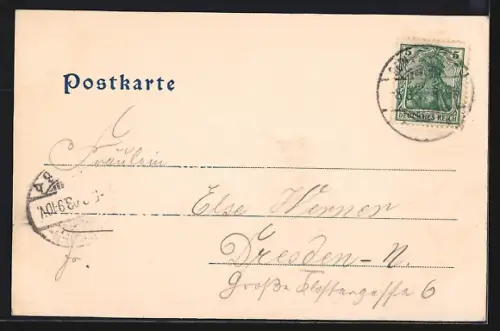 Postkarte
5 5
DEUTSCHES REICH
Fräulein
Else Werner
Dresden-N.
Große Klostergasse 6